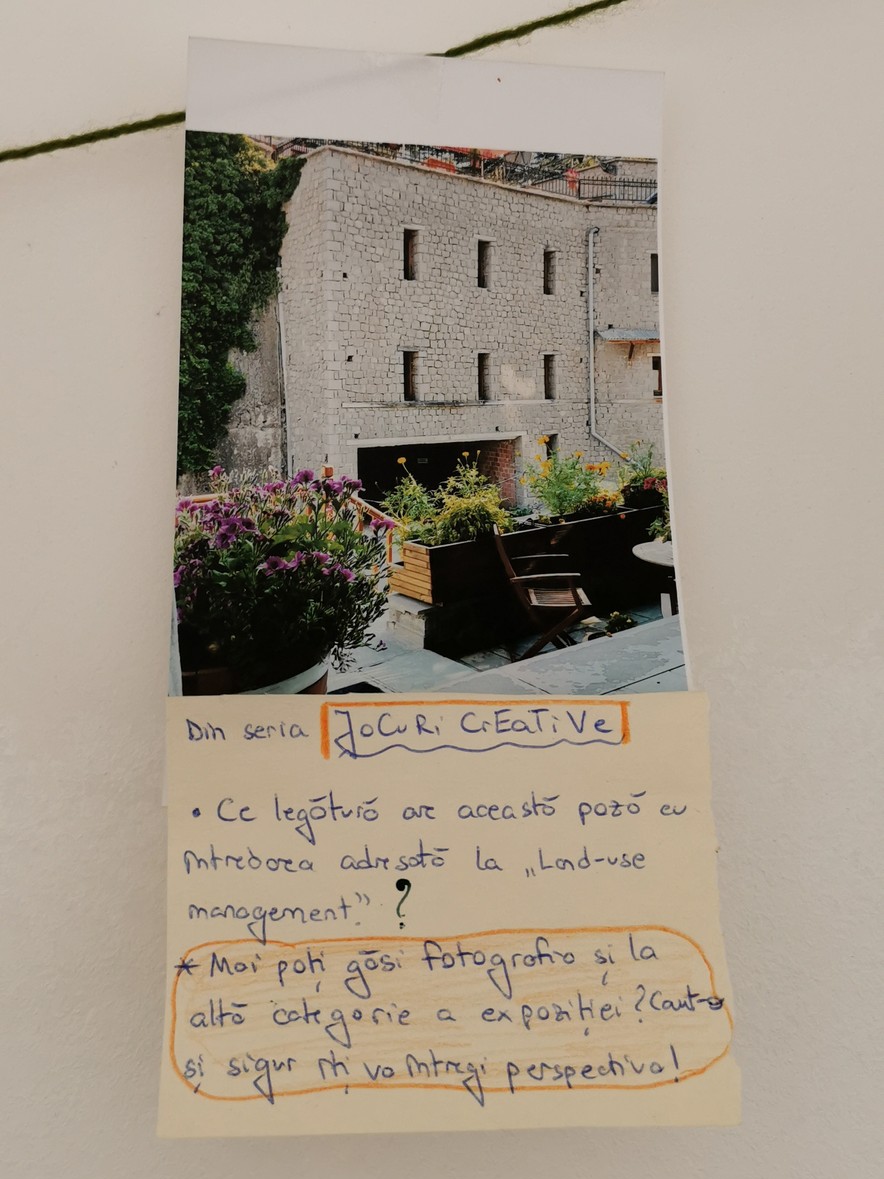 Din seria JoCuRi CrEaTiVe
• Ce legătură are această poză cu
întrebarea adresată la „Land-use
management”?
* Mai poți găsi fotografia și la
altă categorie a expoziției? Caut-o
și sigur îți va întregi perspectiva!